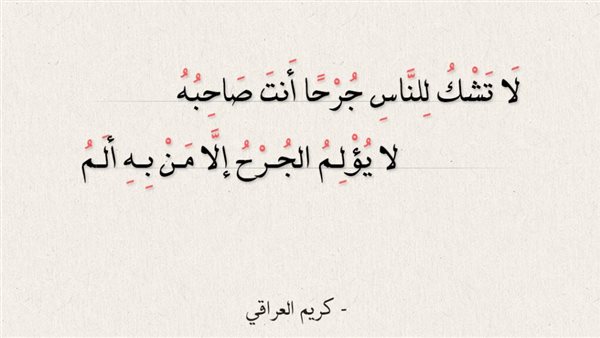 لَا تَشْكُ لِلنَّاسِ جُرْحًا أَنتَ صَاحِبُهُ
لا يُؤْلِمُ الجُرْحُ إلَّا مَنْ بِهِ ألَمُ
- كريم العراقي